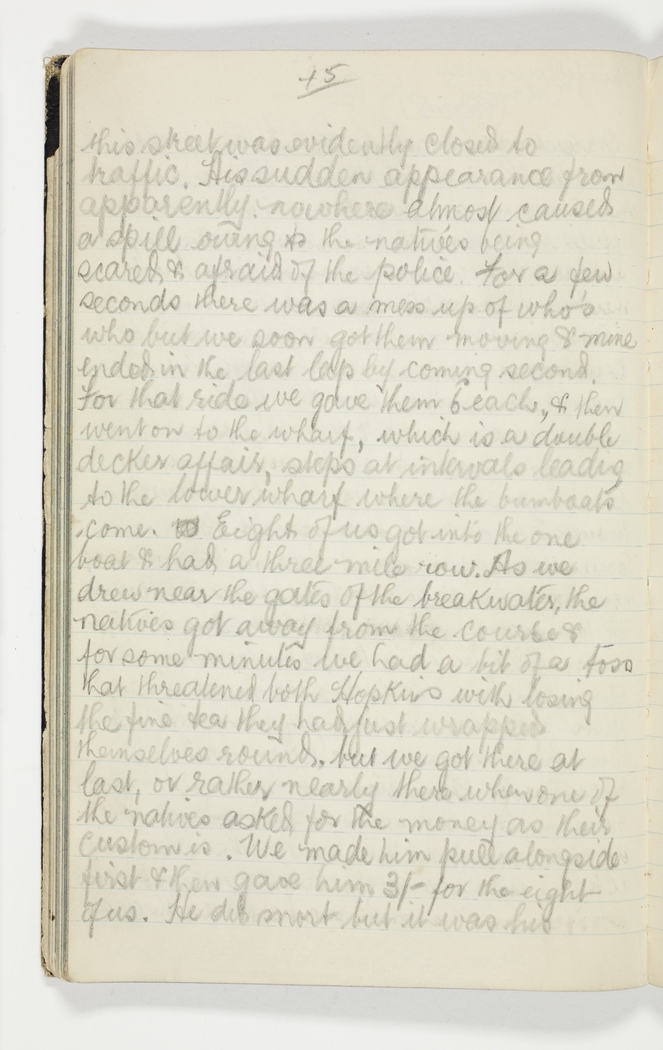 45
this street was evidently closed to
traffic. His sudden appearance from
apparently nowhere almost caused
a spill owing to the natives being
scared & afraid of the police. For a few
seconds there was a mess up of who's
who but we soon got them moving & mine
ended in the last lap by coming second.
For that ride we gave them 6 each, & then
went on to the wharf, which is a double
decker affair, steps at intervals leadig
to the lower wharf where the bumboats
come. Eight of us got into the one
boat & had a three mile row. As we
drew near the gates of the breakwater, the
natives got away from the course &
for some minutes we had a bit of a toss
that threatened both Hopkins with losing
the fine tea they had just wrapped
themselves round, but we got there at
last, or rather nearly there when one of
the natives asked for the money as their
custom is. We made him pull alongside
first & then gave him 3/- for the eight
of us. He did snort but it was his